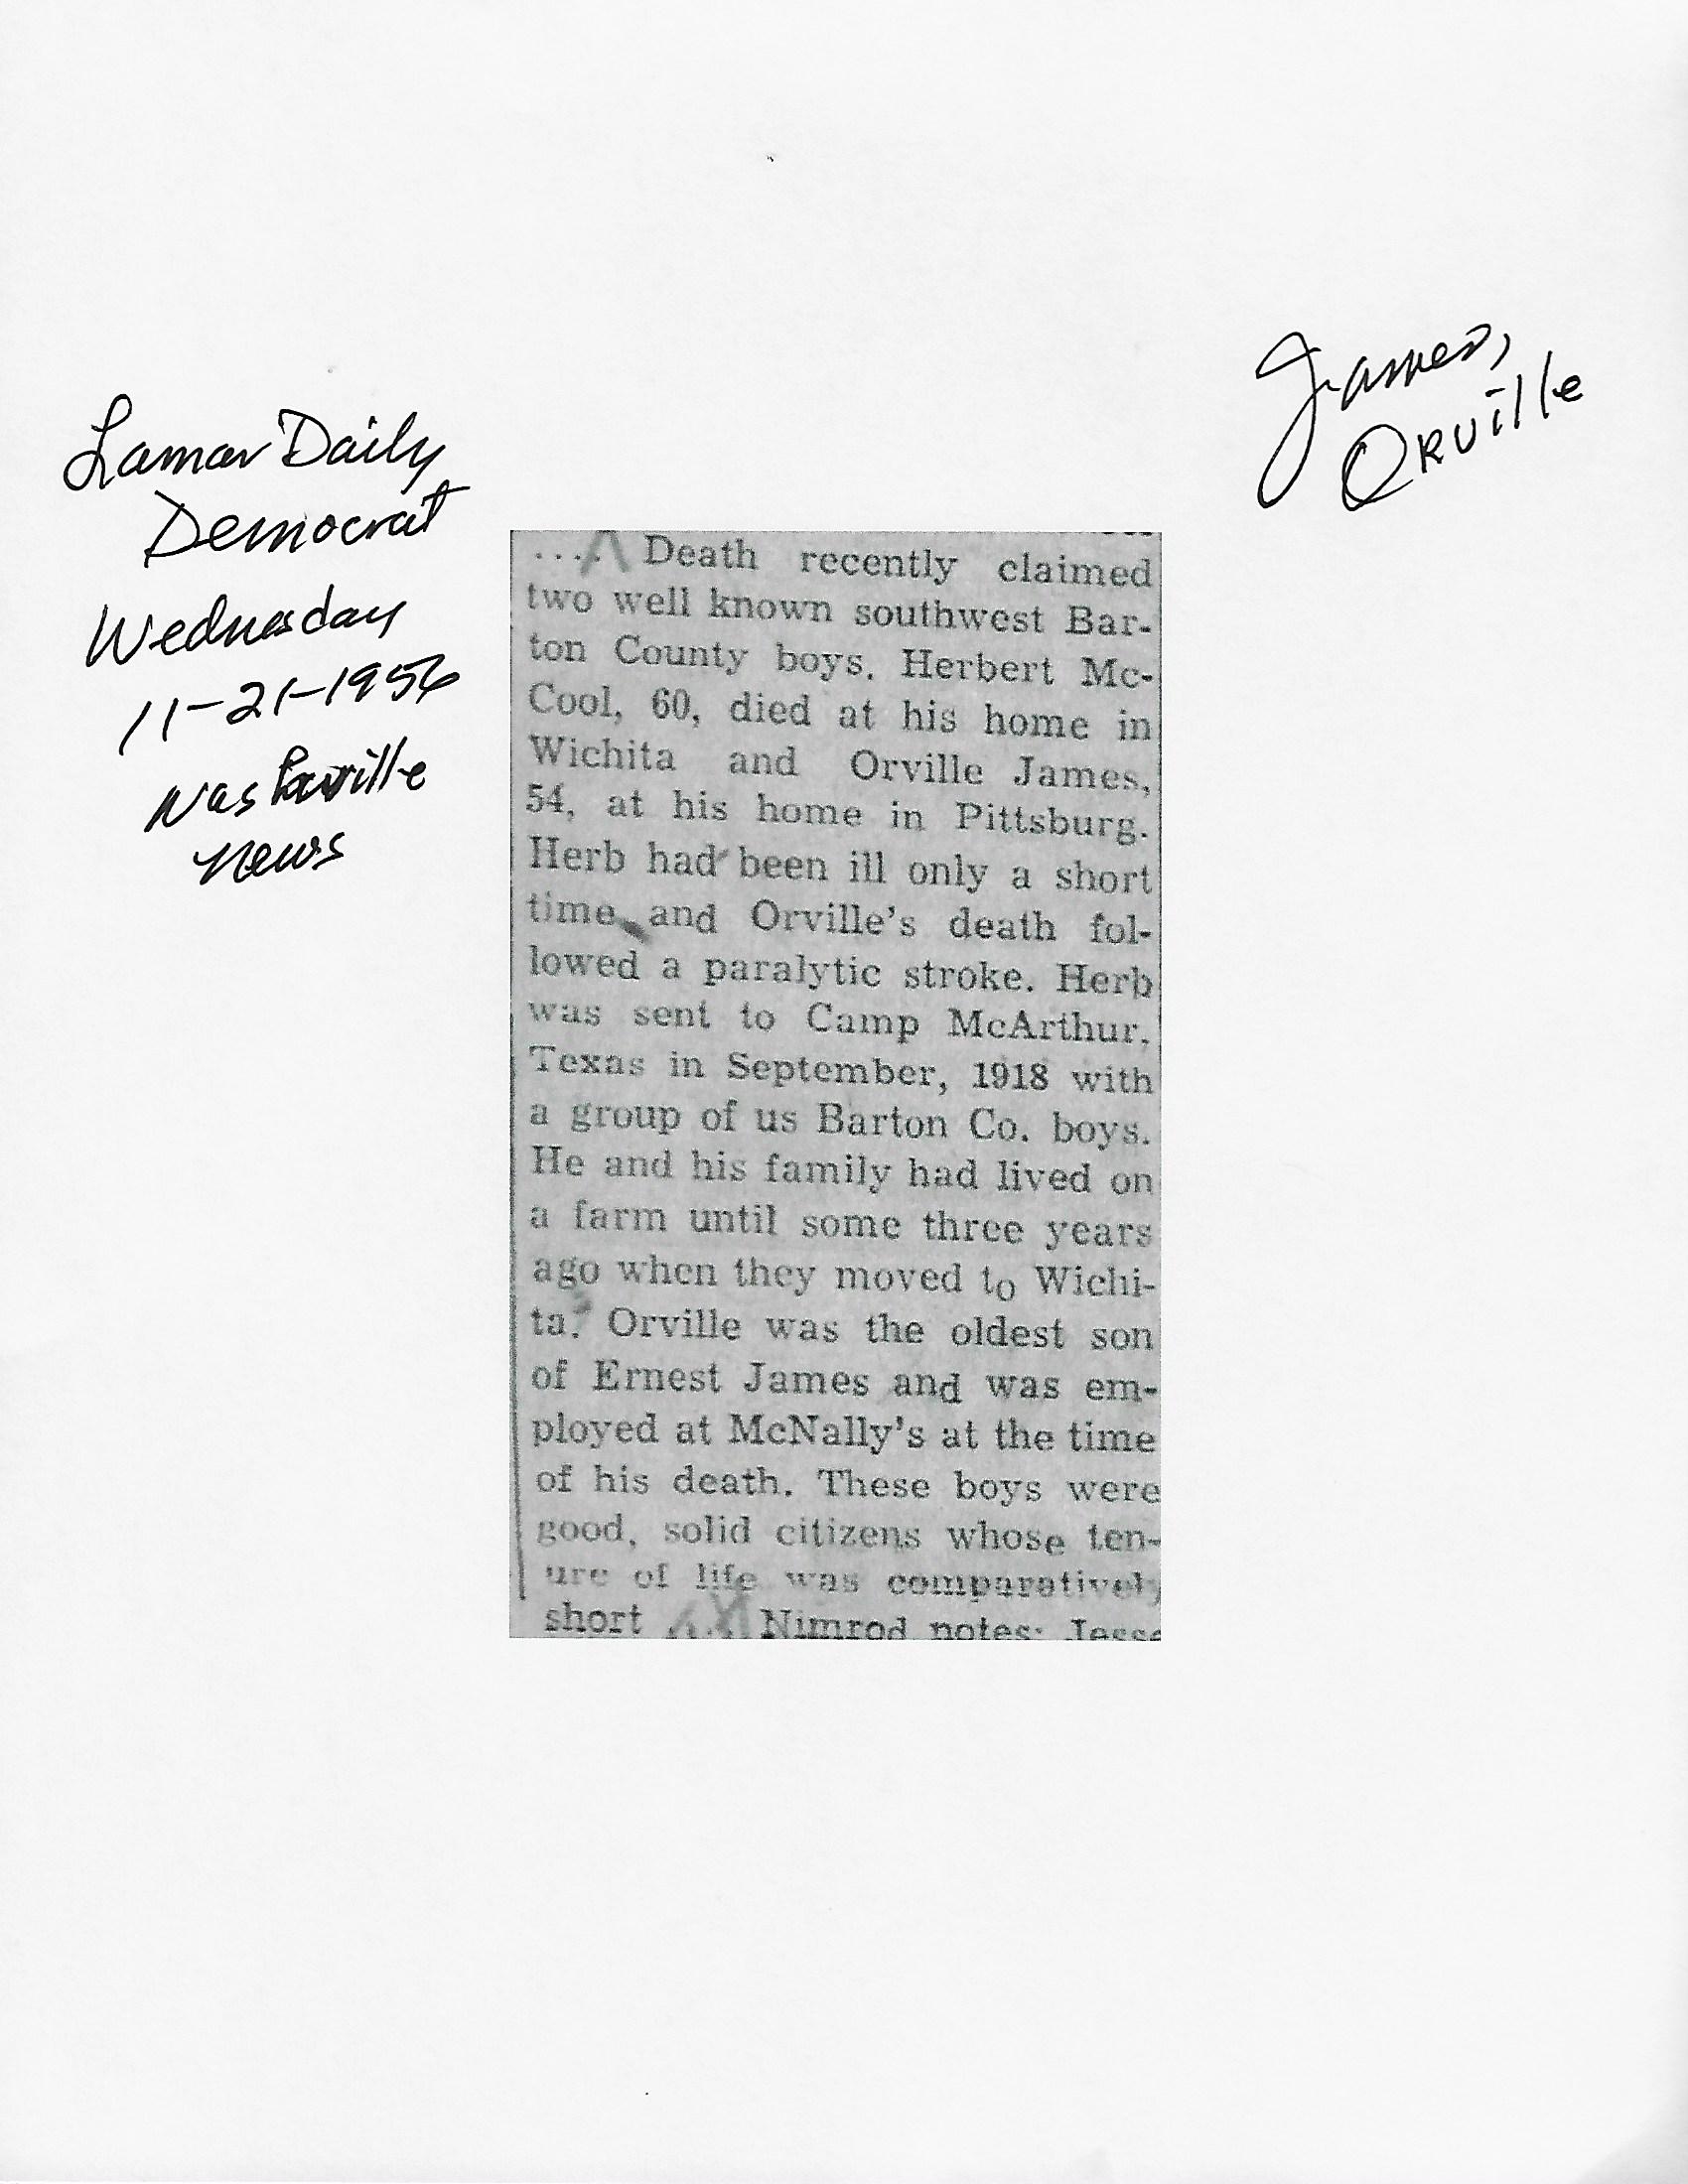 James,
Orville
Lamar Daily
Democrat
Wednesday
11-21-1956
Nashville
News
... Death recently claimed
two well known southwest Bar-
ton County boys. Herbert Mc-
Cool, 60, died at his home in
Wichita and Orville James,
54, at his home in Pittsburg.
Herb had been ill only a short
time and Orville's death fol-
lowed a paralytic stroke. Herb
was sent to Camp McArthur,
Texas in September, 1918 with
a group of us Barton Co. boys.
He and his family had lived on
a farm until some three years
ago when they moved to Wichi-
ta. Orville was the oldest son
of Ernest James and was em-
ployed at McNally's at the time
of his death. These boys were
good, solid citizens whose ten-
ure of life was comparatively
short Nimrod notes: Jesse